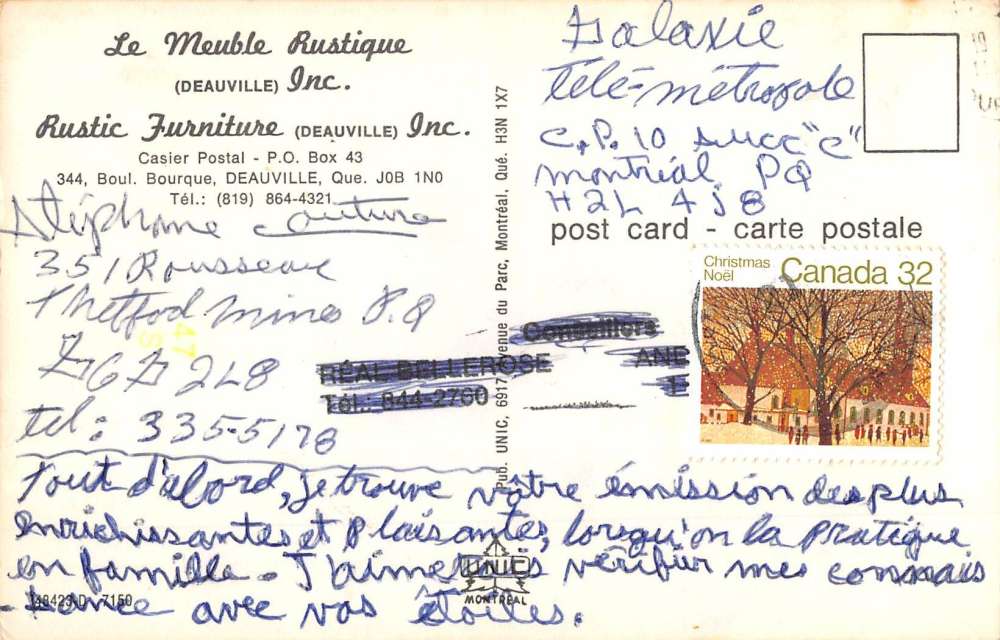 Le Meuble Rustique
(DEAUVILLE) Inc.
Rustic Furniture (DEAUVILLE) Inc.
Casier Postal - P.O. Box 43
344, Boul. Bourque, DEAUVILLE, Que. J0B 1N0
Tél.: (819) 864-4321
Stéphane Couture
351 Rousseau
Thetford mines P.Q
G6G 2L8
tel: 335-5178
Galaxie
Télé-métropole
C.P. 10 succ "C"
montréal PQ
H2L 4J8
post card - carte postale
Christmas
Noël
Canada 32
Conseillers
RÉAL BELLEROSE
Tél. 844-2760
Pub. UNIC, 6917 Avenue du Parc, Montréal, Qué. H3N 1X7
Tout d'abord, je trouve vôtre émission des plus
enrichissantes et plaisantes, lorsqu'on la pratique
en famille. J'aimerais vérifier mes connais
-sance avec vos étoiles.
UNIC
MONTREAL
7150